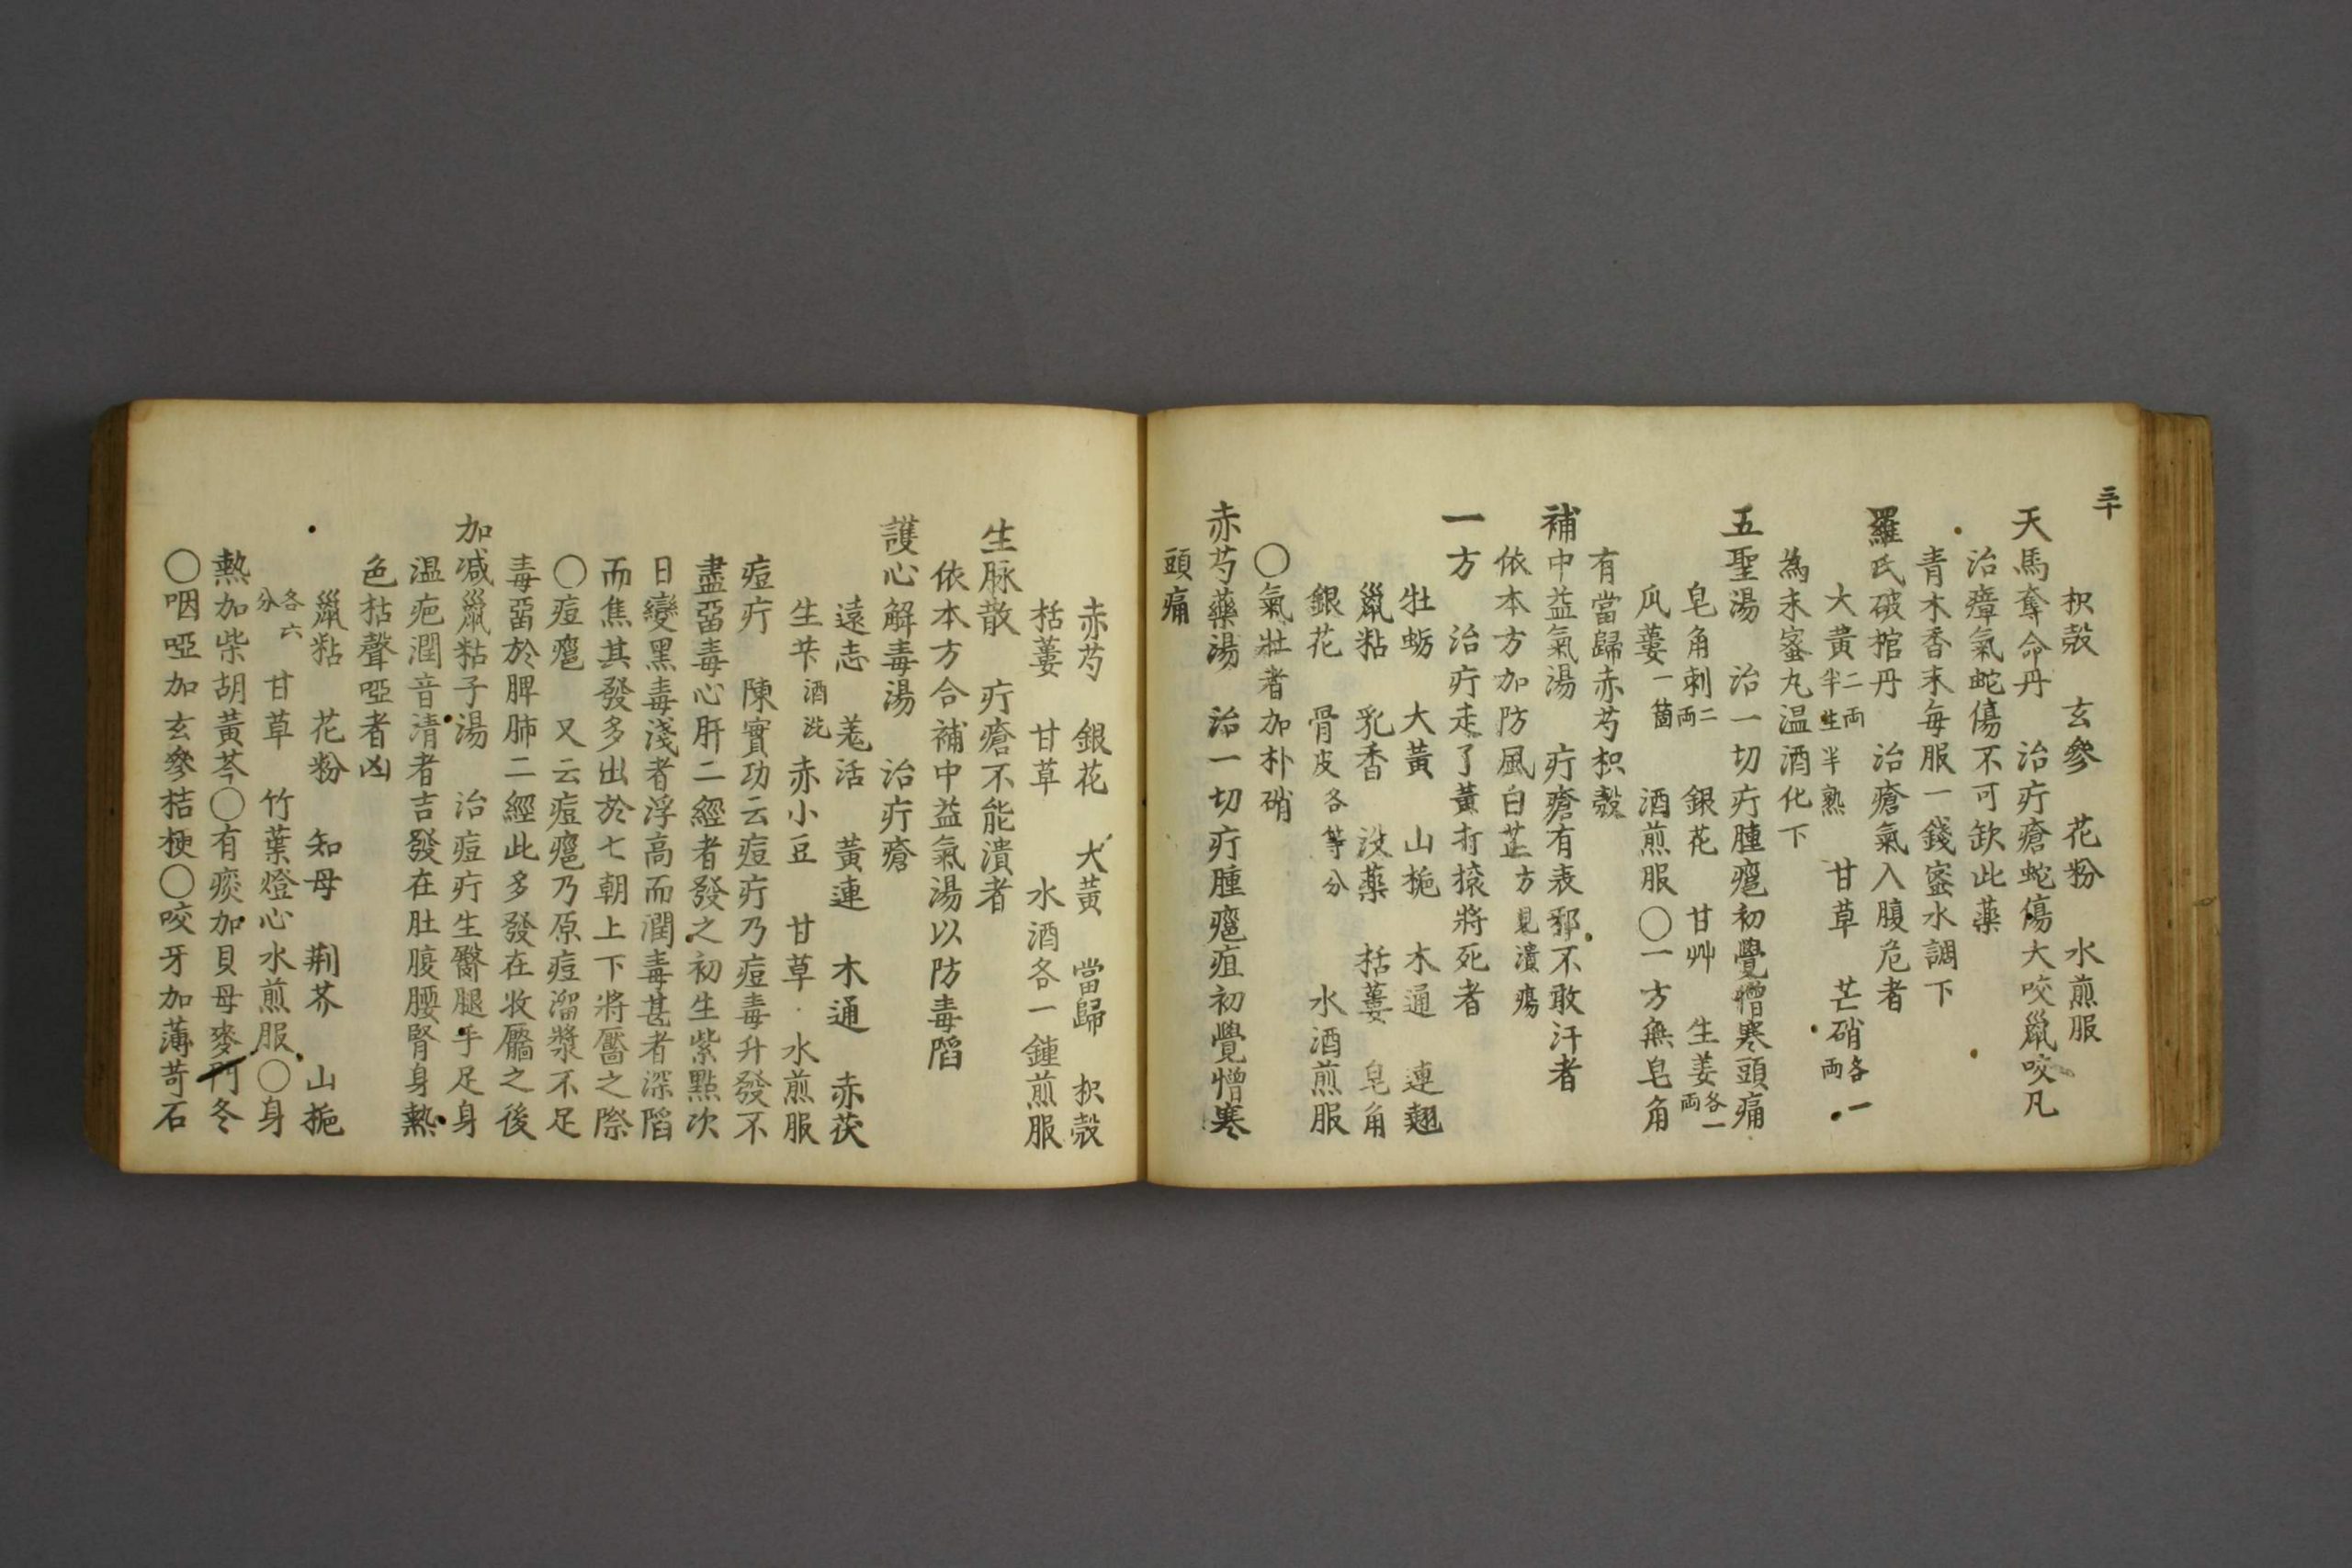 三十
枳殻 玄參 花粉 水煎服
天馬奪命丹 治疔瘡蛇傷犬咬鼠咬凡
治瘴氣蛇傷不可缺此薬
青木香末毎服一錢蜜水調下
羅氏破棺丹 治瘡氣入腹危者
大黄二両半生半熟 甘草 芒硝各一両
為末蜜丸温酒化下
五聖湯 治一切疔腫癰初覺憎寒頭痛
皂角刺二両 銀花 甘艸 生姜各一両
瓜蔞一箇 酒煎服〇一方無皂角
有當歸赤芍枳殻
補中益氣湯 疔瘡有表邪不敢汗者
依本方加防風白芷方見潰瘍
一方 治疔走了黄打滾将死者
牡蛎 大黄 山梔 木通 連翹
鼠粘 乳香 没薬 括蔞 皂角
銀花 骨皮各等分 水酒煎服
〇氣壮者加朴硝
赤芍藥湯 治一切疔腫癰疽初覺憎寒
頭痛
赤芍 銀花 大黄 當歸 枳殻
括蔞 甘草 水酒各一鍾煎服
生脉散 疔瘡不能潰者
依本方合補中益氣湯以防毒䧟
護心解毒湯 治疔瘡
遠志 羗活 黄連 木通 赤茯
生芐酒洗 赤小豆 甘草 水煎服
痘疔 陳實功云痘疔乃痘毒升發不
盡畱毒心肝二經者發之初生紫點次
日變黒毒淺者浮高而潤毒甚者深䧟
而焦其發多出於七朝上下将靨之際
〇痘癰 又云痘癰乃原痘溜漿不足
毒畱於脾肺二經此多發在收靨之後
加减鼠粘子湯 治痘疔生臀腿手足身
温疤潤音清者吉發在肚腹腰腎身熱
色枯聲啞者凶
鼠粘 花粉 知母 荆芥 山梔
各六分 甘草 竹葉燈心水煎服〇身
熱加柴胡黄芩〇有痰加貝母麥門冬
〇咽啞加玄參桔梗〇咬牙加薄苛石